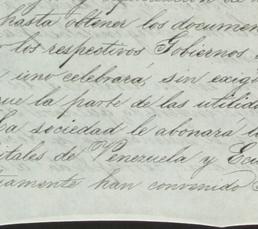 hasta obtener los documen
los respectivos Gobiernos
uno celebrará, sin exigi
que la parte de las utilida
sociedad le abonará la
itales de Venezuela y Ecu
iamente han convenido